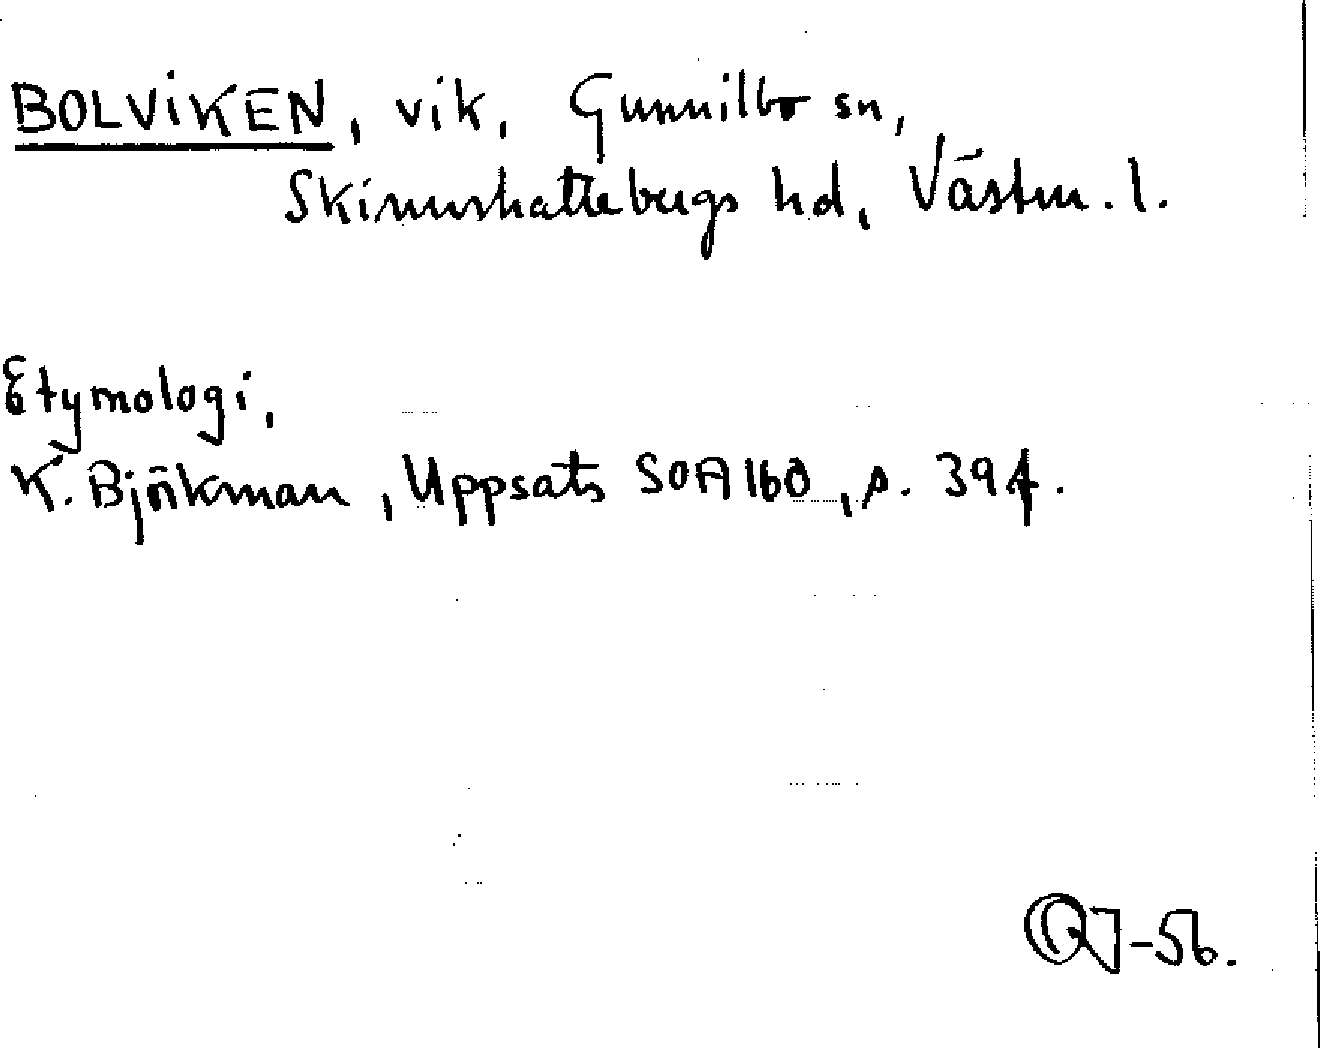 BOLVIKEN, vik, Gunnilbo sn,
Skinnskattebergs hd, Västm. l.
Etymologi,
K. Björkman, Uppsats SOA 160, s. 39 f.
-56.